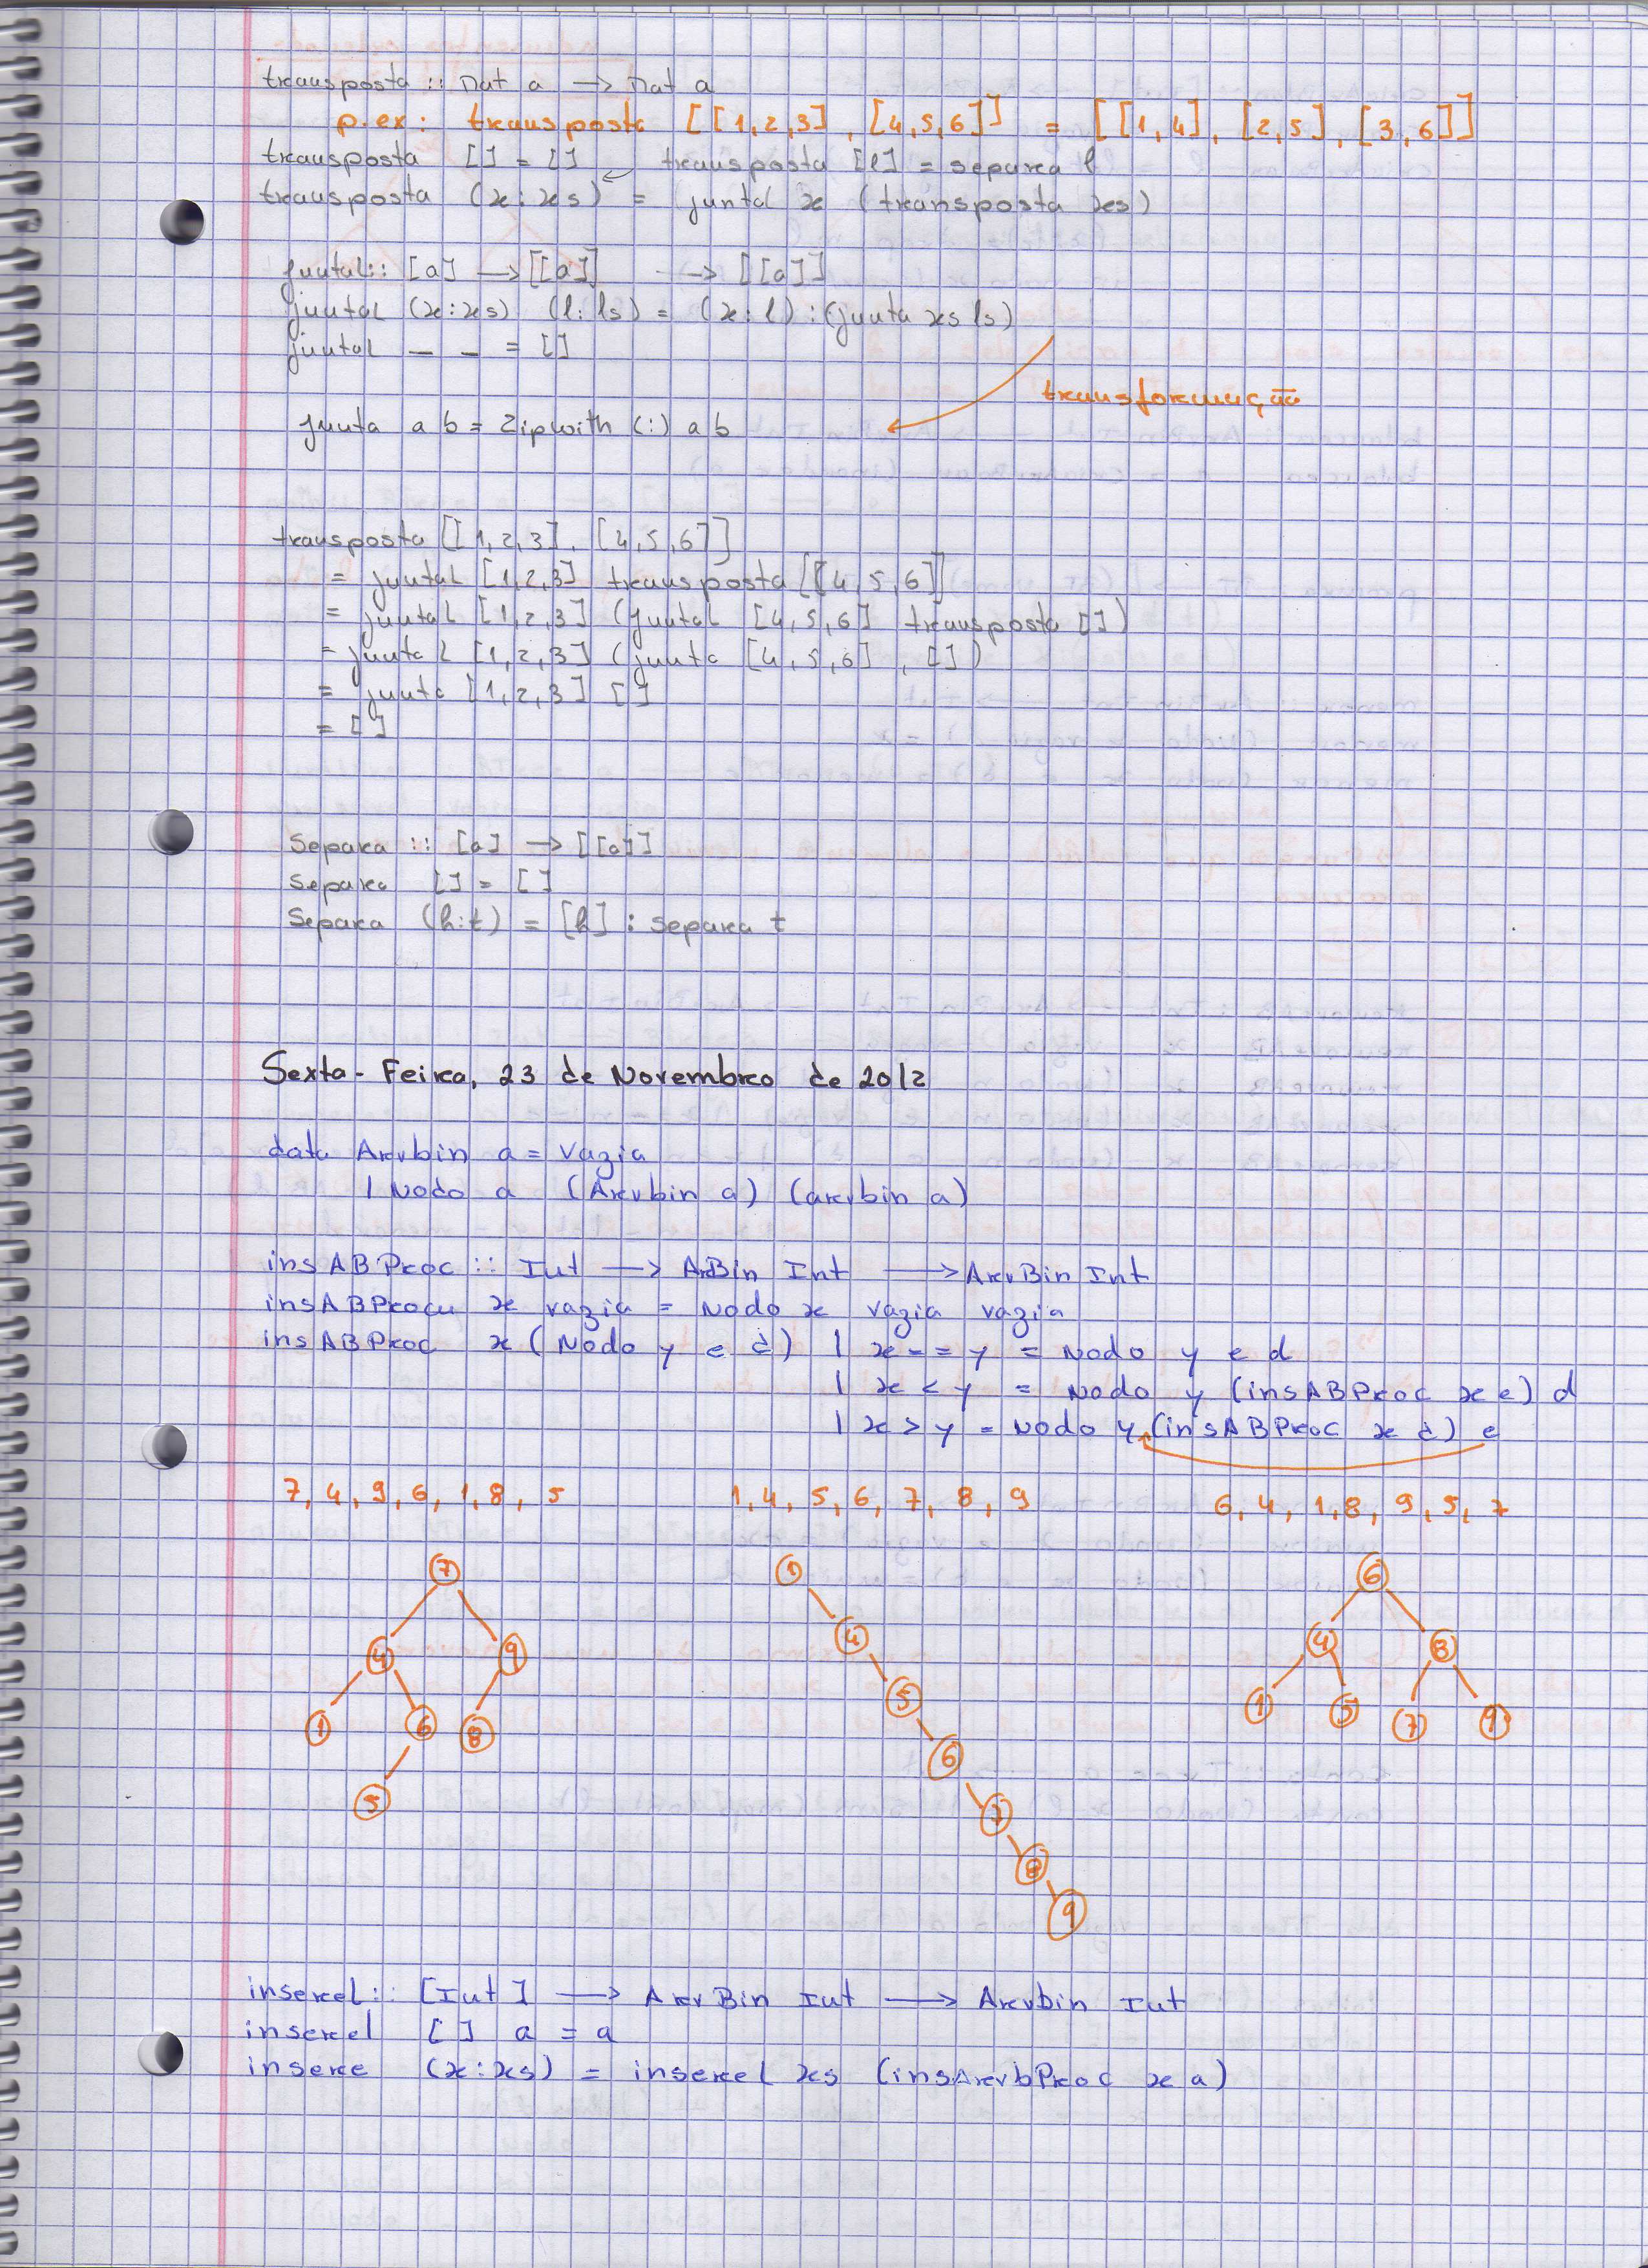 transposta :: Mat a → Mat a
p.ex: transposta [[1,2,3], [4,5,6]] = [[1,4], [2,5], [3,6]]
transposta [] = [] transposta [l] = separa l
transposta (x:xs) = juntaL x (transposta xs)
juntaL:: [a] → [[a]] → [[a]]
juntaL (x:xs) (l:ls) = (x:l):(junta xs ls)
juntaL _ _ = []
transformação
junta a b = zipwith (:) a b
transposta [[1,2,3], [4,5,6]]
= juntaL [1,2,3] transposta [[4,5,6]]
= juntaL [1,2,3] (juntaL [4,5,6] transposta [])
= juntaL [1,2,3] (junta [4,5,6], [])
= junta [1,2,3] []
= []
Separa :: [a] → [[a]]
Separa [] = []
Separa (h:t) = [h] : separa t
Sexta-Feira, 23 de Novembro de 2012
data Arvbin a = vazia
| Nodo a (Arvbin a) (arvbin a)
insABProc :: Int → ArBin Int → ArvBin Int
insABProcu x vazia = Nodo x vazia vazia
insABProc x (Nodo y e d) | x == y = Nodo y e d
| x < y = Nodo y (insABProc x e) d
| x > y = Nodo y (insABProc x d) e
7, 4, 9, 6, 1, 8, 5 1, 4, 5, 6, 7, 8, 9 6, 4, 1, 8, 9, 5, 7
7 1 6
4 9 4 4 8
1 6 8 5 1 5 7 9
5 6
7
8
9
inserel:: [Int] → ArvBin Int → Arvbin Int
inserel [] a = a
insere (x:xs) = inserel xs (insArvbProc x a)